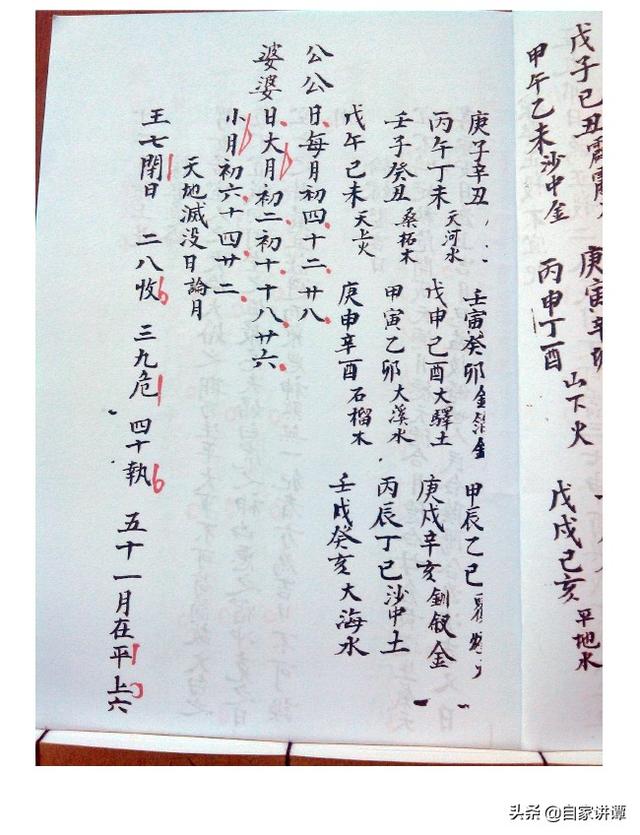 戊子己丑霹靂 庚寅辛
甲午乙未沙中金 丙申丁酉山下火 戊戌己亥平地水
庚子辛丑 壬寅癸卯金箔金 甲辰乙巳
丙午丁未天河水 戊申己酉大驛土 庚戌辛亥釧釵金
壬子癸丑桑柘木 甲寅乙卯大溪水 丙辰丁巳沙中土
戊午己未天上火 庚申辛酉石榴木 壬戌癸亥大海水
公公日每月初四十二廿八
婆婆日大月初二初十十八廿六
小月初六十四廿二
天地滅没日論月
王七閉日 二八收 三九危 四十執 五十一月在平上六
头条 @自家讲谭